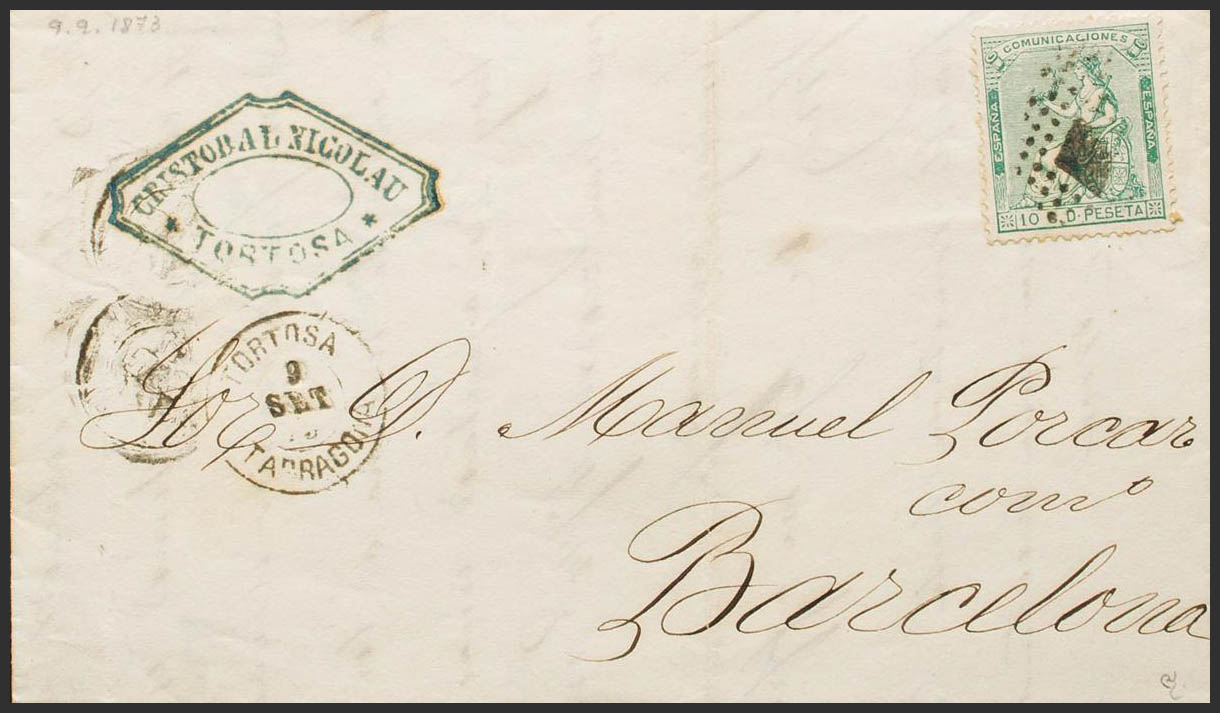 9.9.1873
COMUNICACIONES
ESPAÑA
ESPAÑA
10 C. D. PESETA
CRISTOBAL NICOLAU
* TORTOSA *
TORTOSA
9
SET
TARRAGONA
Sor. D. Manuel Porcar
como
Barcelona